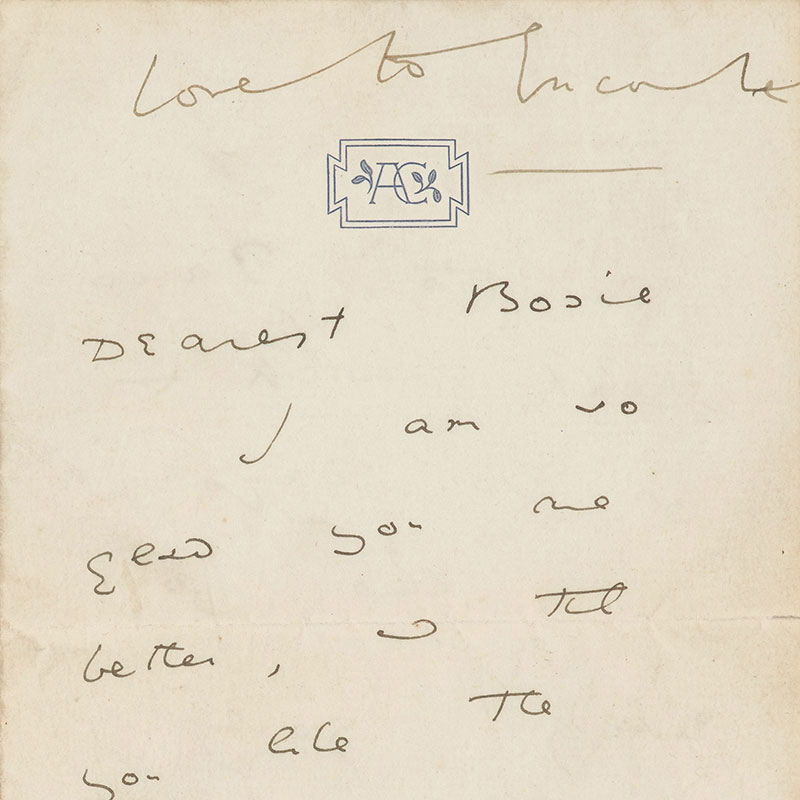 Love to Encombe
AC
Dearest Bosie
I am so
glad you are
better, & that
you like the